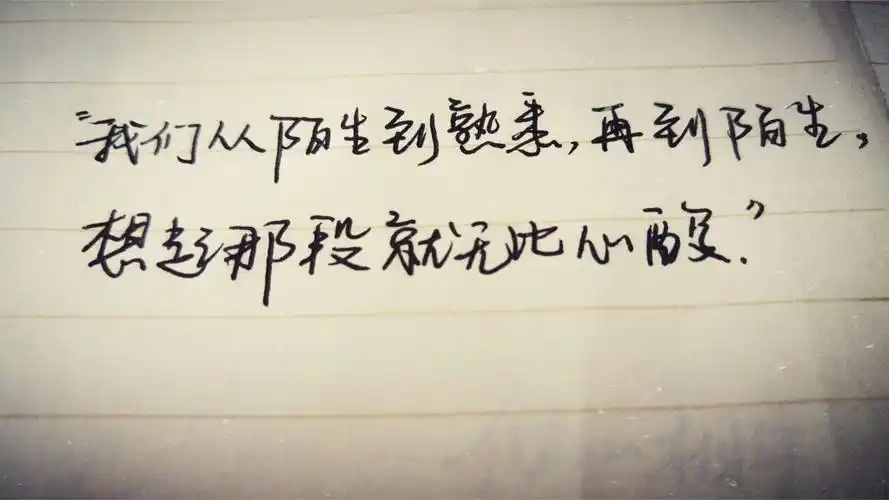 “我们从陌生到熟悉,再到陌生,
想起那段就无比心酸.”